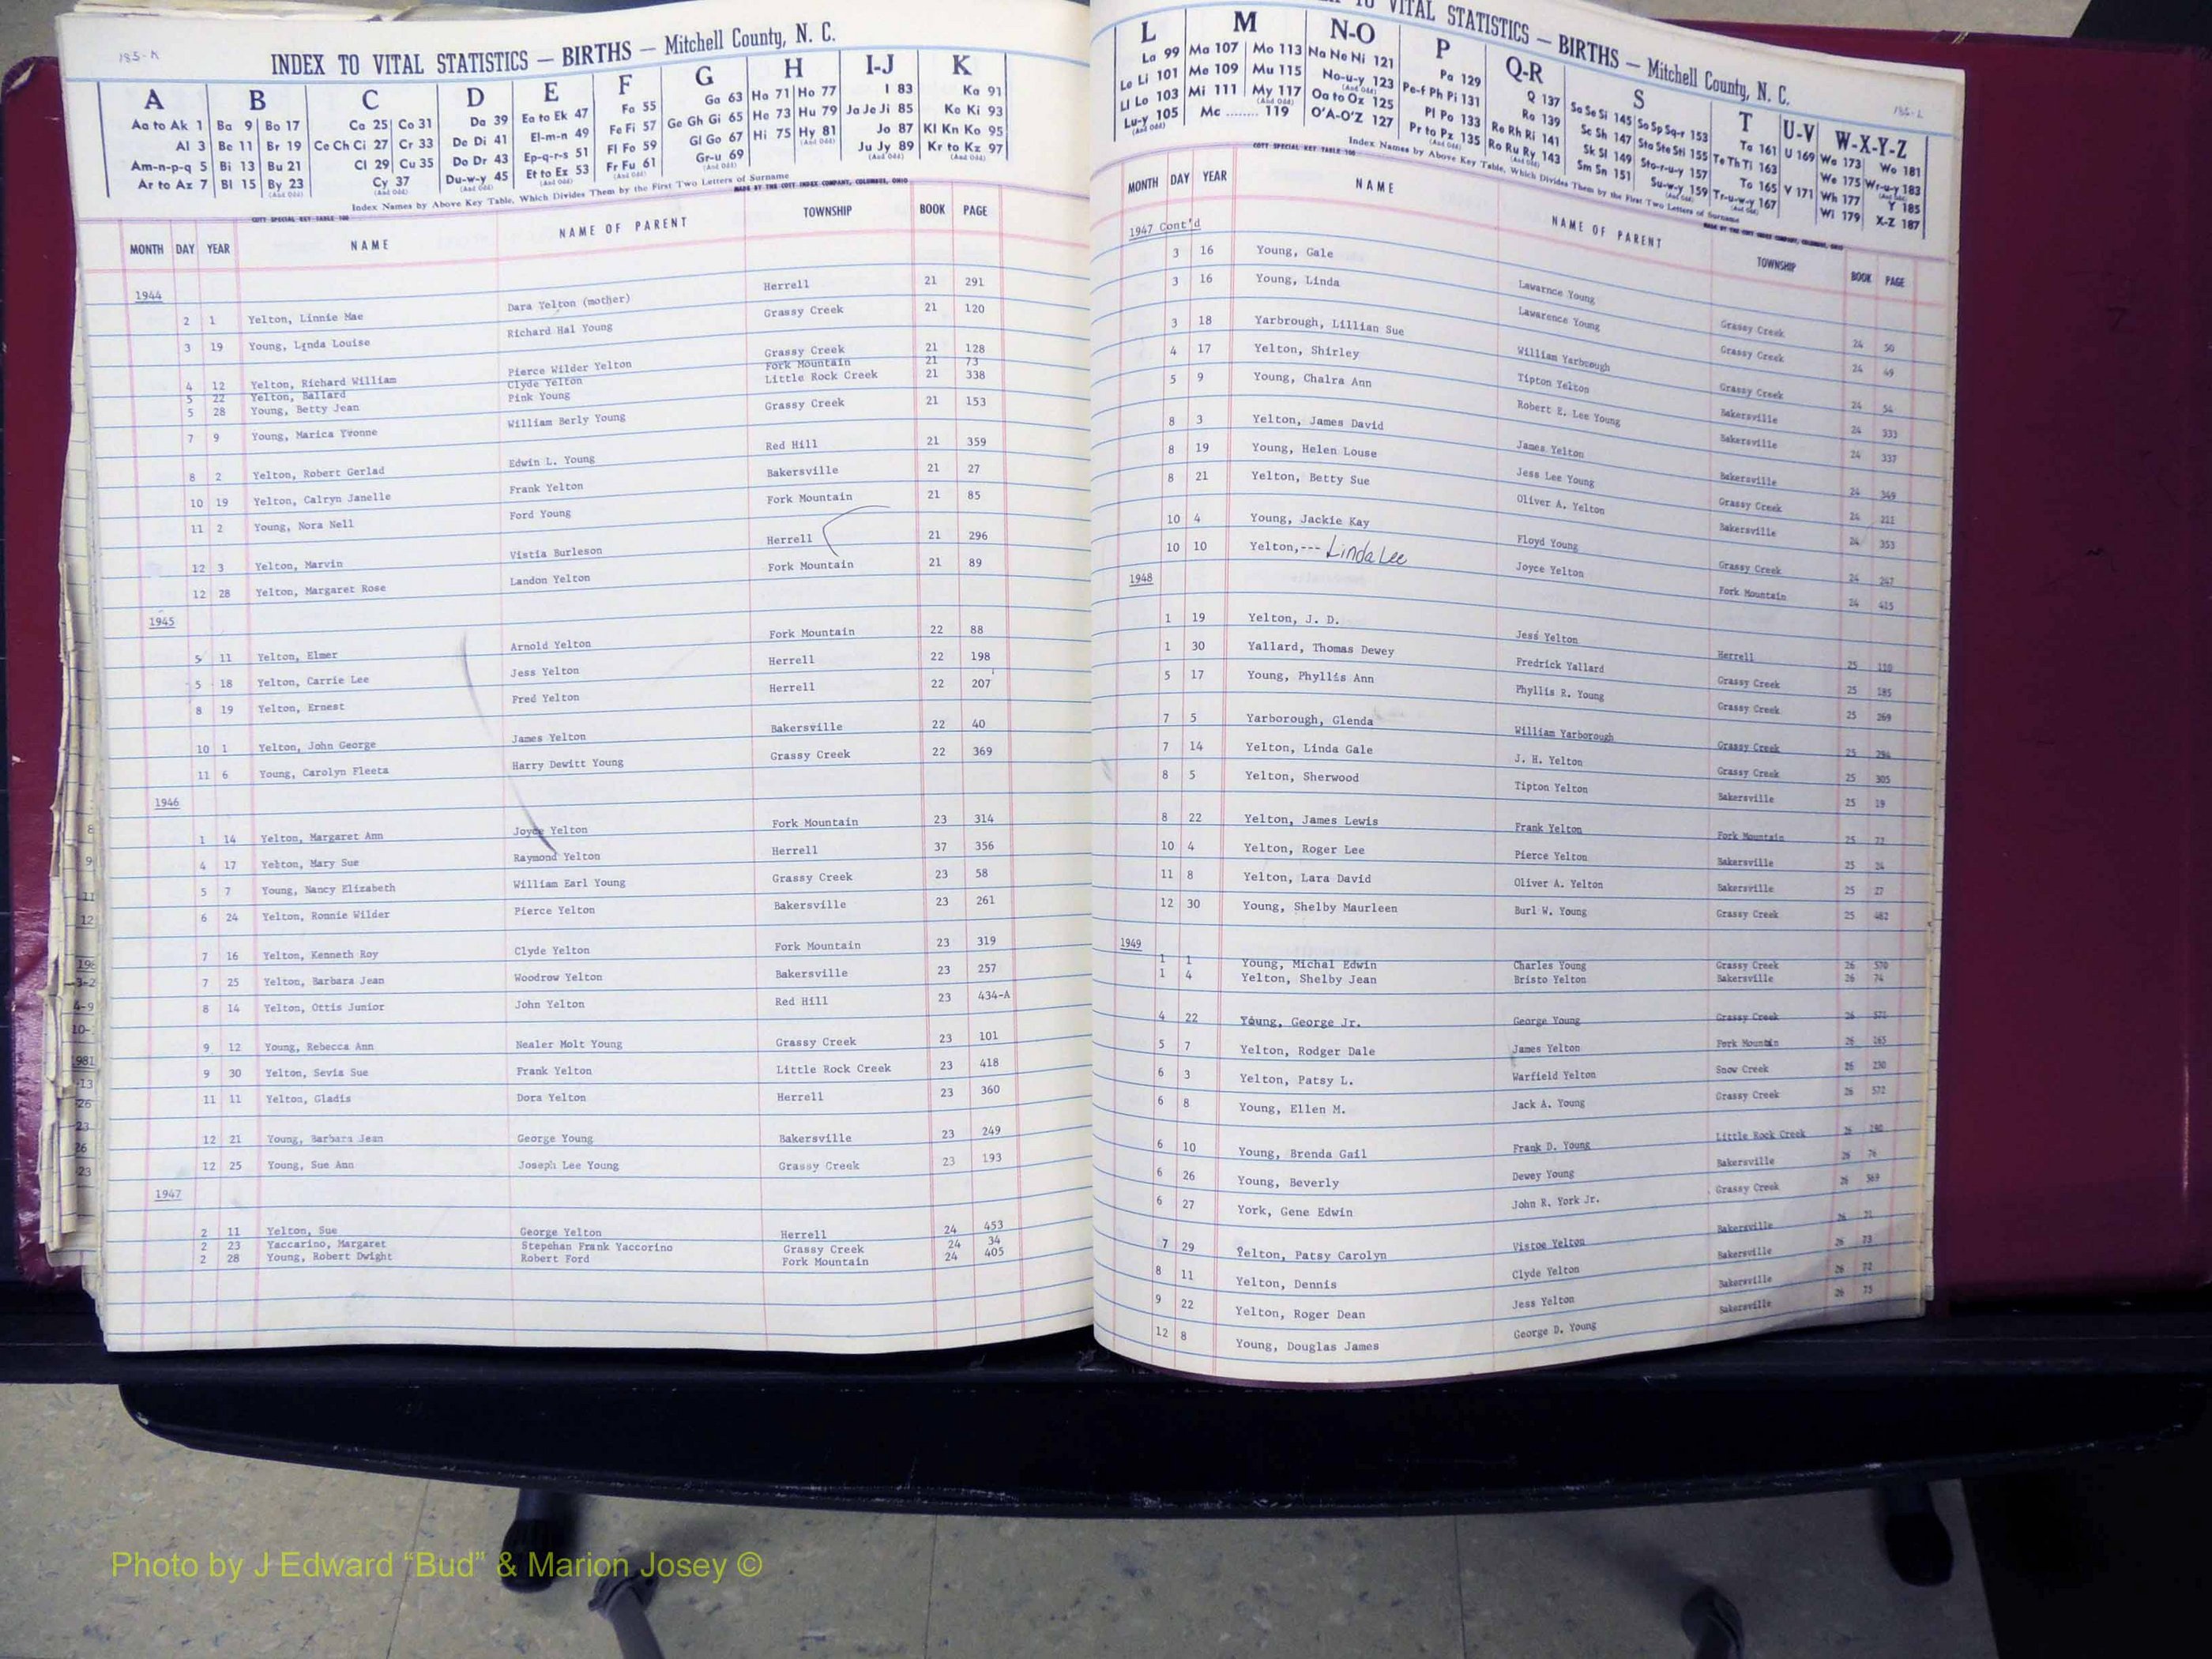 185-K
INDEX TO VITAL STATISTICS — BIRTHS — Mitchell County, N. C.
A B C D E F G H I-J K
Aa to Ak 1 Ba 9 Bo 17 Ca 25 Co 31 Da 39 Ea to Ek 47 Fa 55 Ga 63 Ha 71 Ho 77 I 83 Ka 91
Al 3 Be 11 Br 19 Ce Ch Ci 27 Cr 33 De Di 41 El-m-n 49 Fe Fi 57 Ge Gh Gi 65 He 73 Hu 79 Ja Je Ji 85 Ke Ki 93
Am-n-p-q 5 Bi 13 Bu 21 Cl 29 Cu 35 Do Dr 43 Ep-q-r-s 51 Fl Fo 59 Gl Go 67 Hi 75 Hy 81 Jo 87 Kl Kn Ko 95
Ar to Az 7 Bl 15 By 23 Cy 37 Du-w-y 45 Et to Ez 53 Fr Fu 61 Gr-u 69 Ju Jy 89 Kr to Kz 97
Index Names by Above Key Table, Which Divides Them by the First Two Letters of Surname
COTT SPECIAL KEY TABLE 100 MADE BY THE COTT INDEX COMPANY, COLUMBUS, OHIO
MONTH DAY YEAR NAME NAME OF PARENT TOWNSHIP BOOK PAGE
1944
2 1 Yelton, Linnie Mae Dara Yelton (mother) Herrell 21 291
3 19 Young, Linda Louise Richard Hal Young Grassy Creek 21 120
4 12 Yelton, Richard William Pierce Wilder Yelton Grassy Creek 21 128
5 22 Yelton, Ballard Clyde Yelton Fork Mountain 21 73
5 28 Young, Betty Jean Pink Young Little Rock Creek 21 338
7 9 Young, Marica Yvonne William Berly Young Grassy Creek 21 153
8 2 Yelton, Robert Gerlad Edwin L. Young Red Hill 21 359
10 19 Yelton, Calryn Janelle Frank Yelton Bakersville 21 27
11 2 Young, Nora Nell Ford Young Fork Mountain 21 85
12 3 Yelton, Marvin Vistia Burleson Herrell 21 296
12 28 Yelton, Margaret Rose Landon Yelton Fork Mountain 21 89
1945
5 11 Yelton, Elmer Arnold Yelton Fork Mountain 22 88
5 18 Yelton, Carrie Lee Jess Yelton Herrell 22 198
8 19 Yelton, Ernest Fred Yelton Herrell 22 207
10 1 Yelton, John George James Yelton Bakersville 22 40
11 6 Young, Carolyn Fleeta Harry Dewitt Young Grassy Creek 22 369
1946
1 14 Yelton, Margaret Ann Joyce Yelton Fork Mountain 23 314
4 17 Yelton, Mary Sue Raymond Yelton Herrell 37 356
5 7 Young, Nancy Elizabeth William Earl Young Grassy Creek 23 58
6 24 Yelton, Ronnie Wilder Pierce Yelton Bakersville 23 261
7 16 Yelton, Kenneth Roy Clyde Yelton Fork Mountain 23 319
7 25 Yelton, Barbara Jean Woodrow Yelton Bakersville 23 257
8 14 Yelton, Ottis Junior John Yelton Red Hill 23 434-A
9 12 Young, Rebecca Ann Nealer Molt Young Grassy Creek 23 101
9 30 Yelton, Sevia Sue Frank Yelton Little Rock Creek 23 418
11 11 Yelton, Gladis Dora Yelton Herrell 23 360
12 21 Young, Barbara Jean George Young Bakersville 23 249
12 25 Young, Sue Ann Joseph Lee Young Grassy Creek 23 193
1947
2 11 Yelton, Sue George Yelton Herrell 24 453
2 23 Yaccarino, Margaret Stepehan Frank Yaccorino Grassy Creek 24 34
2 28 Young, Robert Dwight Robert Ford Fork Mountain 24 405
TO VITAL STATISTICS — BIRTHS — Mitchell County, N. C.
185-L
L M N-O P Q-R S T U-V W-X-Y-Z
La 99 Ma 107 Mo 113 Na Ne Ni 121 Pa 129 Q 137 Sa Se Si 145 So Sp Sq-r 153 Ta 161 U 169 Wa 173 Wo 181
Le Li 101 Me 109 Mu 115 No-u-y 123 Pe-f Ph Pi 131 Ra 139 Sc Sh 147 Sta Ste Sti 155 Te Th Ti 163 V 171 We 175 Wr-u-y 183
Ll Lo 103 Mi 111 My 117 Oa to Oz 125 Pl Po 133 Re Rh Ri 141 Sk Sl 149 Sto-r-u-y 157 To 165 Wh 177 Y 185
Lu-y 105 Mc ........ 119 O'A-O'Z 127 Pr to Pz 135 Ro Ru Ry 143 Sm Sn 151 Su-w-y 159 Tr-u-w-y 167 Wi 179 X-Z 187
Index Names by Above Key Table, Which Divides Them by the First Two Letters of Surname
COTT SPECIAL KEY TABLE 100 MADE BY THE COTT INDEX COMPANY, COLUMBUS, OHIO
MONTH DAY YEAR NAME NAME OF PARENT TOWNSHIP BOOK PAGE
1947 Cont'd
3 16 Young, Gale Lawarnce Young Grassy Creek 24 50
3 16 Young, Linda Lawarence Young Grassy Creek 24 49
3 18 Yarbrough, Lillian Sue William Yarbrough Grassy Creek 24 54
4 17 Yelton, Shirley Tipton Yelton Bakersville 24 333
5 9 Young, Chalra Ann Robert E. Lee Young Bakersville 24 337
8 3 Yelton, James David James Yelton Bakersville 24 349
8 19 Young, Helen Louse Jess Lee Young Grassy Creek 24 211
8 21 Yelton, Betty Sue Oliver A. Yelton Bakersville 24 353
10 4 Young, Jackie Kay Floyd Young Grassy Creek 24 247
10 10 Yelton,--- Linda Lee Joyce Yelton Fork Mountain 24 415
1948
1 19 Yelton, J. D. Jess Yelton Herrell 25 110
1 30 Yallard, Thomas Dewey Fredrick Yallard Grassy Creek 25 185
5 17 Young, Phyllis Ann Phyllis R. Young Grassy Creek 25 269
7 5 Yarborough, Glenda William Yarborough Grassy Creek 25 294
7 14 Yelton, Linda Gale J. H. Yelton Grassy Creek 25 305
8 5 Yelton, Sherwood Tipton Yelton Bakersville 25 19
8 22 Yelton, James Lewis Frank Yelton Fork Mountain 25 72
10 4 Yelton, Roger Lee Pierce Yelton Bakersville 25 24
11 8 Yelton, Lara David Oliver A. Yelton Bakersville 25 27
12 30 Young, Shelby Maurleen Burl W. Young Grassy Creek 25 462
1949
1 1 Young, Michal Edwin Charles Young Grassy Creek 26 570
1 4 Yelton, Shelby Jean Bristo Yelton Bakersville 26 74
4 22 Young, George Jr. George Young Grassy Creek 26 571
5 7 Yelton, Rodger Dale James Yelton Fork Mountain 26 165
6 3 Yelton, Patsy L. Warfield Yelton Snow Creek 26 230
6 8 Young, Ellen M. Jack A. Young Grassy Creek 26 572
6 10 Young, Brenda Gail Frank D. Young Little Rock Creek 26 190
6 26 Young, Beverly Dewey Young Bakersville 26 76
6 27 York, Gene Edwin John R. York Jr. Grassy Creek 26 569
7 29 Yelton, Patsy Carolyn Vistoe Yelton Bakersville 26 71
8 11 Yelton, Dennis Clyde Yelton Bakersville 26 73
9 22 Yelton, Roger Dean Jess Yelton Bakersville 26 72
12 8 Young, Douglas James George D. Young Bakersville 26 75
Photo by J Edward "Bud" & Marion Josey ©